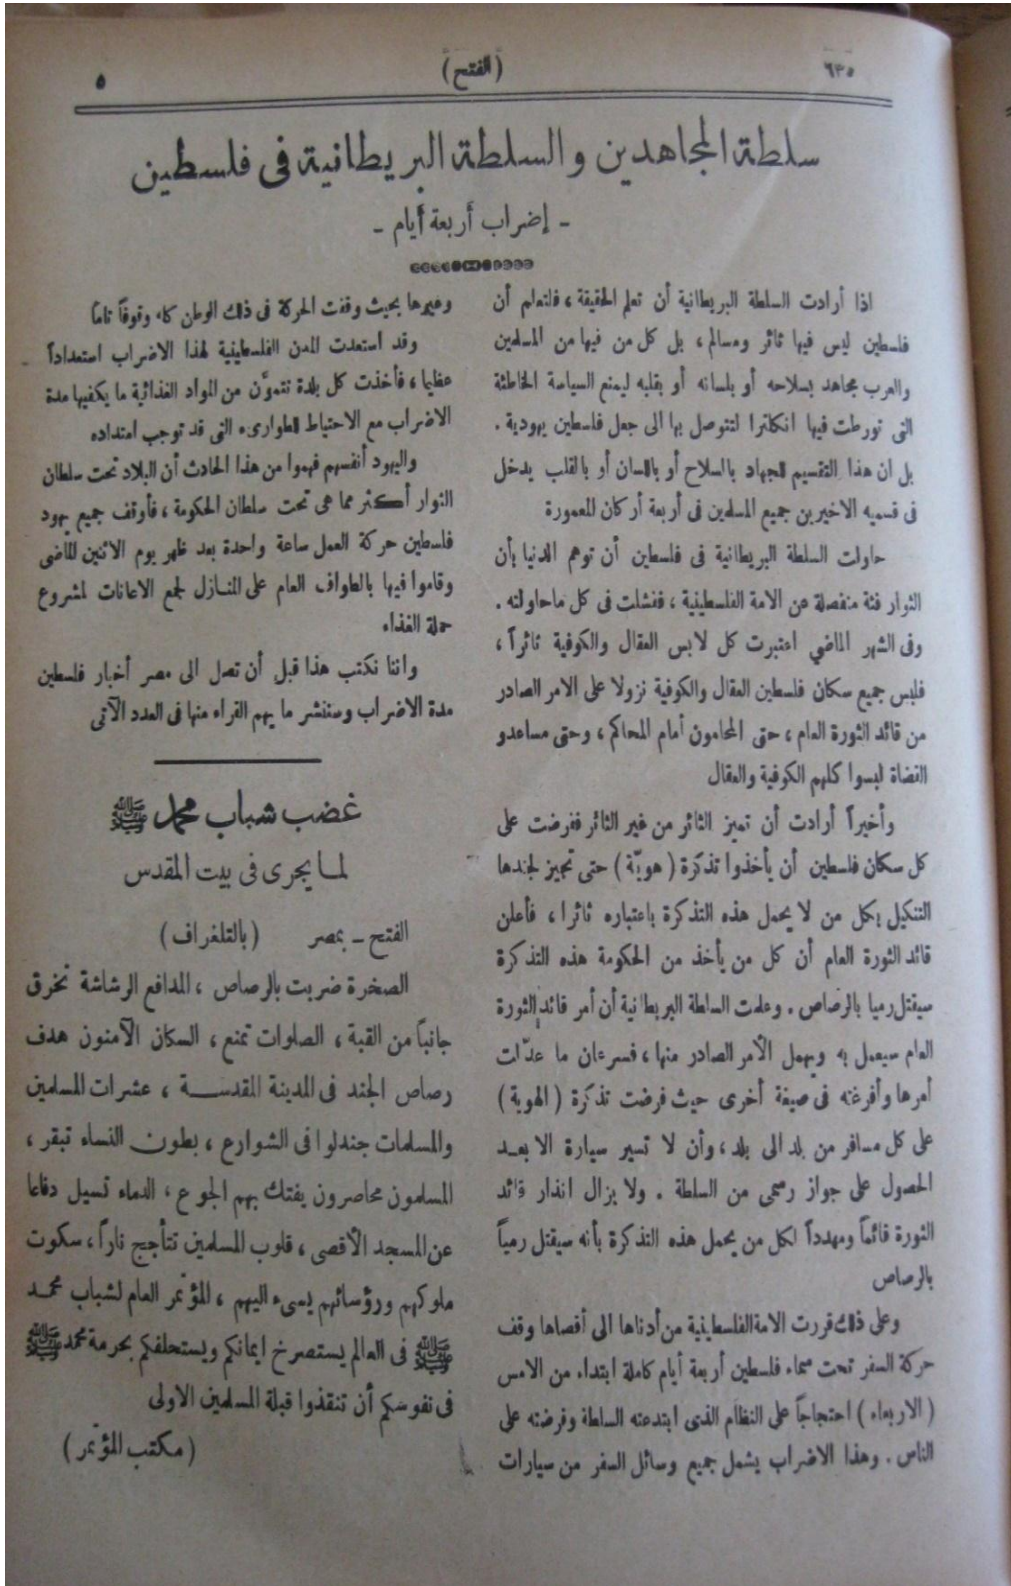 ٦٣٥
(الفتح)
٥
سلطة المجاهدين والسلطة البريطانية فى فلسطين
- إضراب أربعة أيام -
اذا أرادت السلطة البريطانية أن تعلم الحقيقة ، فلتعلم أن
فلسطين ليس فيها ثائر ومسالم ، بل كل من فيها من المسلمين
والعرب مجاهد بسلاحه أو بلسانه أو بقلبه ليمنع السياسة الخاطئة
التى تورطت فيها انكلترا لتتوصل بها الى جعل فلسطين يهودية .
بل ان هذا التقسيم للجهاد بالسلاح أو باللسان أو بالقلب يدخل
فى قسميه الاخيرين جميع المسلمين فى أربعة أركان المعمورة
حاولت السلطة البريطانية فى فلسطين أن توهم الدنيا بأن
الثوار فئة منفصلة عن الامة الفلسطينية ، ففشلت فى كل ماحاولته .
وفى الشهر الماضي اعتبرت كل لابس العقال والكوفية ثائراً ،
فلبس جميع سكان فلسطين العقال والكوفية نزولا على الامر الصادر
من قائد الثورة العام ، حتى المحامون أمام المحاكم ، وحتى مساعدو
القضاة لبسوا كلهم الكوفية والعقال
وأخيراً أرادت أن تميز الثائر من غير الثائر ففرضت على
كل سكان فلسطين أن يأخذوا تذكرة ( هويّة ) حتى تجيز لجندها
التنكيل بكل من لا يحمل هذه التذكرة باعتباره ثائرا ، فأعلن
قائد الثورة العام أن كل من يأخذ من الحكومة هذه التذكرة
سيقتل رميا بالرصاص . وعلمت السلطة البريطانية أن أمر قائد الثورة
العام سيعمل به ويهمل الأمر الصادر منها ، فسرعان ما عدّلت
أمرها وأفرغته فى صيغة أخرى حيث فرضت تذكرة ( الهوية )
على كل مسافر من بلد الى بلد ، وأن لا تسير سيارة الا بعد
الحصول على جواز رسمى من السلطة . ولا يزال انذار قائد
الثورة قائماً ومهدداً لكل من يحمل هذه التذكرة بأنه سيقتل رمياً
بالرصاص
وعلى ذلك قررت الامة الفلسطينية من أدناها الى أقصاها وقف
حركة السفر تحت سماء فلسطين أربعة أيام كاملة ابتداء من الامس
( الاربعاء ) احتجاجاً على النظام الذى ابتدعته السلطة وفرضته على
الناس . وهذا الاضراب يشمل جميع وسائل السفر من سيارات
وغيرها بحيث وقفت الحركة فى ذلك الوطن كله وقوفاً تاماً
وقد استعدت المدن الفلسطينية لهذا الاضراب استعداداً
عظيما ، فأخذت كل بلدة تتموَّن من المواد الغذائية ما يكفيها مدة
الاضراب مع الاحتياط للطوارىء التى قد توجب امتداده
واليهود أنفسهم فهموا من هذا الحادث أن البلاد تحت سلطان
الثوار أكثر مما هى تحت سلطان الحكومة ، فأوقف جميع يهود
فلسطين حركة العمل ساعة واحدة بعد ظهر يوم الاثنين الماضى
وقاموا فيها بالطواف العام على المنازل لجمع الاعانات لمشروع
حملة الغذاء
واننا نكتب هذا قبل أن تصل الى مصر أخبار فلسطين
مدة الاضراب وسننشر ما يهم القراء منها فى العدد الآتى
غضب شباب محمد ﷺ
لما يجرى فى بيت المقدس
الفتح - بمصر (بالتلغراف)
الصخرة ضربت بالرصاص ، المدافع الرشاشة تخرق
جانباً من القبة ، الصلوات تمنع ، السكان الآمنون هدف
رصاص الجند فى المدينة المقدسة ، عشرات المسلمين
والمسلمات جندلوا فى الشوارع ، بطون النساء تبقر ،
المسلمون محاصرون يفتك بهم الجوع ، الدماء تسيل دفاعا
عن المسجد الأقصى ، قلوب المسلمين تتأجج ناراً ، سكوت
ملوكهم ورؤسائهم يسىء اليهم ، المؤتمر العام لشباب محمد
ﷺ فى العالم يستصرخ ايمانكم ويستحلفكم بحرمة محمد ﷺ
فى نفوسكم أن تنقذوا قبلة المسلمين الاولى
( مكتب المؤتمر )